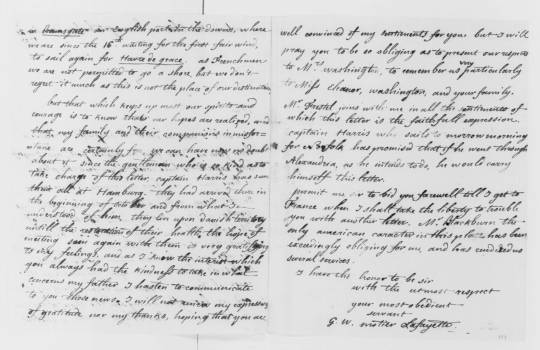 in Ramsgate an English port in the downs, where
we are since the 16th waiting for the first fair wind,
to sail again for Havre de grace. as Frenchmen
we are not permitted to go a shore, but we don't
regret it much as this is not the place of our destination
but that which keeps up most our spirits and
courage is to know that our hopes are realized, and
that my family and their companions in misfor-
tune are certainly free we can have now no doubt
about it since the gentleman who is so kind as to
take charge of this letter, captain Harris has seen
them all at Hamburg. they had arrived there in
the beginning of october and from what I
understood of him, they live upon danish territory
untill the restoration of their health. the hope of
meeting soon again with them is very gratifying
to my feelings, and as I know the interest which
you always had the kindness to take in what
concerns my father I hasten to communicate
to you those news. I will not my expressions
of gratitude nor my thanks, hoping that you are
well convinced of my sentiments for you. but I will
pray you to be so obliging as to present our respects
to Mrs washington, to remember us very particularly
to Miss washington, and your family.
Mr Frestel joins with me in all the sentiments of
which this letter is the faithfull expression.
captain Harris who sails to morrow morning
for norfolk has promised that if he went through
Alexandria, as he intends to do, he would carry
himself this letter.
permit me sir to bid you farewell till I get to
France when I shall take the liberty to trouble
you with another letter. Mr Blackburn the
only american in this place has been
exceedingly obliging for me, and has rendered us
several services.
I have the honor to be sir
with the utmost respect
your most obedient
servant
G. W. motier Lafayette.